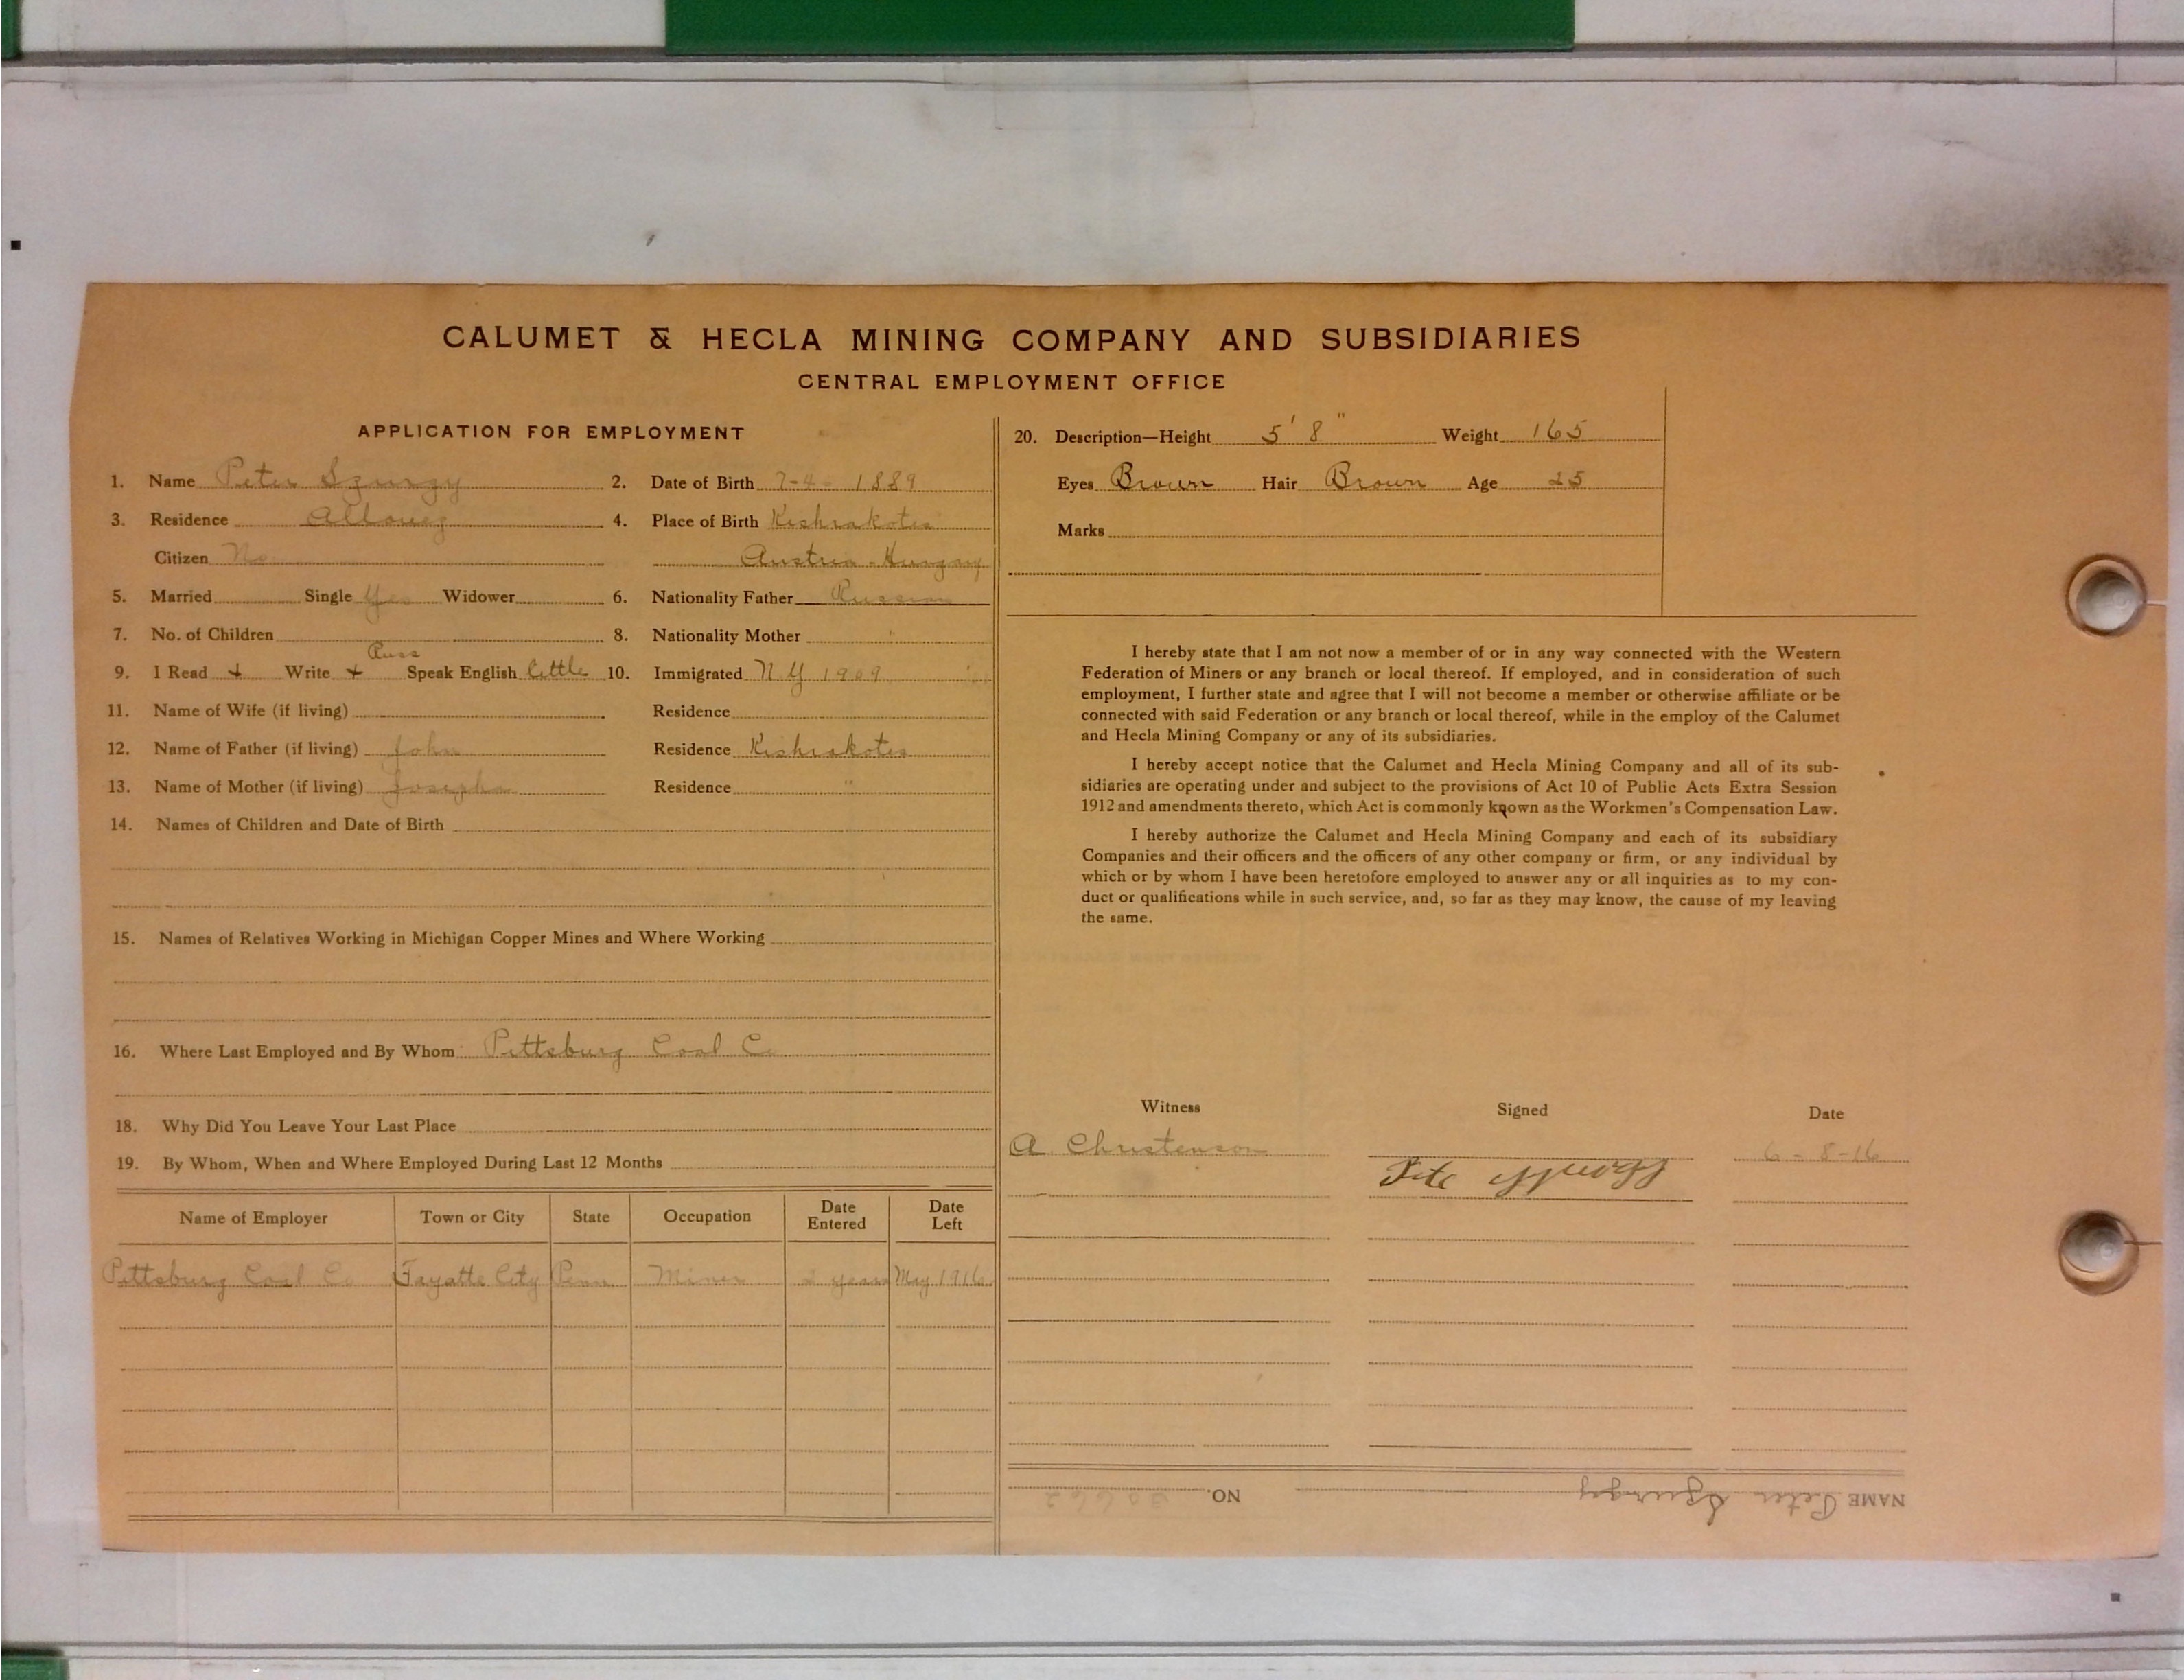 CALUMET & HECLA MINING COMPANY AND SUBSIDIARIES
CENTRAL EMPLOYMENT OFFICE
APPLICATION FOR EMPLOYMENT
1. Name Peter Szurgy 2. Date of Birth 7-4- 1889
3. Residence Allouez 4. Place of Birth Kishrakotes
Citizen No Austria-Hungary
5. Married Single Yes Widower 6. Nationality Father Russian
7. No. of Children 8. Nationality Mother "
Russ
9. I Read + Write + Speak English little 10. Immigrated N.Y 1909
11. Name of Wife (if living) Residence
12. Name of Father (if living) John Residence Kishrakotes
13. Name of Mother (if living) Josepha Residence "
14. Names of Children and Date of Birth
15. Names of Relatives Working in Michigan Copper Mines and Where Working
16. Where Last Employed and By Whom Pittsburg Coal Co
18. Why Did You Leave Your Last Place
19. By Whom, When and Where Employed During Last 12 Months
Name of Employer Town or City State Occupation Date Entered Date Left
Pittsburg Coal Co Fayatte City Penn Miner 2 years May 1916
20. Description—Height 5' 8" Weight 165
Eyes Brown Hair Brown Age 25
Marks
I hereby state that I am not now a member of or in any way connected with the Western
Federation of Miners or any branch or local thereof. If employed, and in consideration of such
employment, I further state and agree that I will not become a member or otherwise affiliate or be
connected with said Federation or any branch or local thereof, while in the employ of the Calumet
and Hecla Mining Company or any of its subsidiaries.
I hereby accept notice that the Calumet and Hecla Mining Company and all of its sub-
sidiaries are operating under and subject to the provisions of Act 10 of Public Acts Extra Session
1912 and amendments thereto, which Act is commonly known as the Workmen's Compensation Law.
I hereby authorize the Calumet and Hecla Mining Company and each of its subsidiary
Companies and their officers and the officers of any other company or firm, or any individual by
which or by whom I have been heretofore employed to answer any or all inquiries as to my con-
duct or qualifications while in such service, and, so far as they may know, the cause of my leaving
the same.
Witness Signed Date
A Christenson 6-8-16
NAME Peter Szurgy NO.